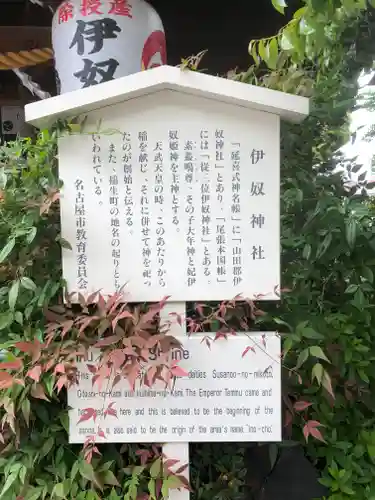 除 役 産
伊奴
伊奴神社
「延喜式神名帳」に「山田郡伊
奴神社」とあり、「尾張本国帳」
には「従二位伊奴神社」とある。
素盞嗚尊、その子大年神と妃伊
奴姫神を主神とする。
天武天皇の時、このあたりから
稲を献じ、それに併せて神を祀っ
たのが創始と伝える。
また、稲生町の地名の起りとも
いわれている。
名古屋市教育委員会
Shrine
This
deities Susanoo-no-mikoto,
Otoshi-no-Kami and
no-Kami. The Emperor Temmu came
here and this is believed to be the beginning of the
is also said to be the origin of the area's name, Ino-cho.